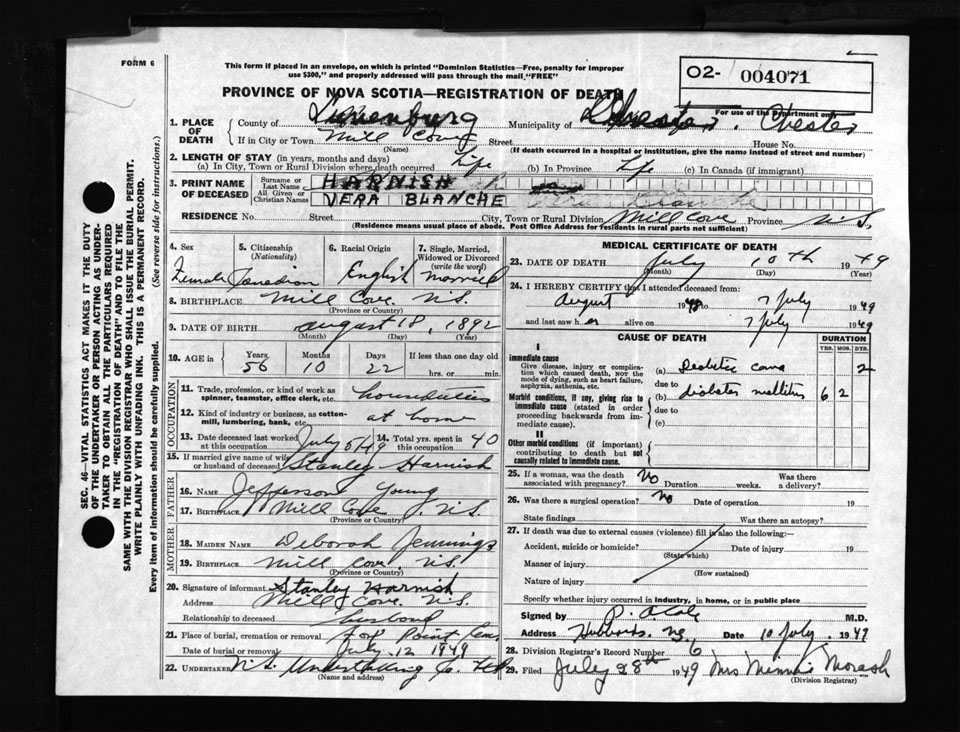 FORM 6
This form if placed in an envelope, on which is printed "Dominion Statistics—Free, penalty for improper
use $300," and properly addressed will pass through the mail "FREE"
O2- 004071
For use of the Department only
PROVINCE OF NOVA SCOTIA—REGISTRATION OF DEATH
1. PLACE OF DEATH
County of Lunenburg Municipality of Chester. Chester
If in City or Town Mill Cove Street House No.
(Name) (If death occurred in a hospital or institution, give the name instead of street and number)
2. LENGTH OF STAY (in years, months and days)
(a) In City, Town or Rural Division where death occurred Life (b) In Province Life (c) In Canada (if immigrant)
3. PRINT NAME OF DECEASED
Surname or Last Name HARNISH
All Given or Christian Names VERA BLANCHE
RESIDENCE No. Street City, Town or Rural Division Mill Cove Province N.S.
(Residence means usual place of abode. Post Office Address for residents in rural parts not sufficient)
4. Sex Female
5. Citizenship (Nationality) Canadian
6. Racial Origin English
7. Single, Married, Widowed or Divorced (write the word) Married
8. BIRTHPLACE Mill Cove. N.S.
(Province or Country)
9. DATE OF BIRTH August 18, 1892
(Month) (Day) (Year)
10. AGE in Years 56 Months 10 Days 22 If less than one day old hrs. or min.
OCCUPATION
11. Trade, profession, or kind of work as spinner, teamster, office clerk, etc.
12. Kind of industry or business, as cotton-mill, lumbering, bank, etc. at home
13. Date deceased last worked at this occupation July 5/49 14. Total yrs. spent in this occupation 40
15. If married give name of wife or husband of deceased Stanley Harnish
FATHER
16. NAME Jefferson Young
17. BIRTHPLACE Mill Cove, N.S.
(Province or Country)
MOTHER
18. MAIDEN NAME Deborah Jennings
19. BIRTHPLACE Mill Cove. N.S.
(Province or Country)
20. Signature of informant Stanley Harnish
Address Mill Cove. N.S.
Relationship to deceased husband
21. Place of burial, cremation or removal Fox Point Cem.
Date of burial or removal July 12 1949
22. UNDERTAKER N.S. Undertaking Co. Ltd
(Name and address)
MEDICAL CERTIFICATE OF DEATH
23. DATE OF DEATH July 10th 1949
(Month) (Day) (Year)
24. I HEREBY CERTIFY that I attended deceased from:
August 1948 to 7 July 1949
and last saw h er alive on 7 July 1949
CAUSE OF DEATH DURATION
YRS. MOS. DYS.
I
Immediate cause
Give disease, injury or complication which caused death, not the mode of dying, such as heart failure, asphyxia, asthenia, etc.
(a) Diabetic coma 2
due to
Morbid conditions, if any, giving rise to immediate cause (stated in order proceeding backwards from immediate cause).
(b) diabetes mellitus 6 2
due to
(c)
II
Other morbid conditions (if important) contributing to death but not causally related to immediate cause.
25. If a woman, was the death associated with pregnancy? No Duration weeks. Was there a delivery?
26. Was there a surgical operation? No Date of operation 19
State findings Was there an autopsy?
27. If death was due to external causes (violence) fill in also the following:
Accident, suicide or homicide? Date of injury 19
(State which)
Manner of injury
(How sustained)
Nature of injury
Specify whether injury occurred in industry, in home, or in public place
Signed by M.D.
Address Hubbards. N.S. Date 10 July. 1949
28. Division Registrar's Record Number 6
29. Filed July 28th 1949 Mrs Minnie Morash
(Division Registrar)
SEC. 46—VITAL STATISTICS ACT MAKES IT THE DUTY
OF THE UNDERTAKER OR PERSON ACTING AS UNDER-
TAKER TO OBTAIN ALL THE PARTICULARS REQUIRED
IN THE "REGISTRATION OF DEATH" AND TO FILE THE
SAME WITH THE DIVISION REGISTRAR WHO SHALL ISSUE THE BURIAL PERMIT.
WRITE PLAINLY WITH UNFADING INK. THIS IS A PERMANENT RECORD.
Every item of information should be carefully supplied. (See reverse side for instructions.)